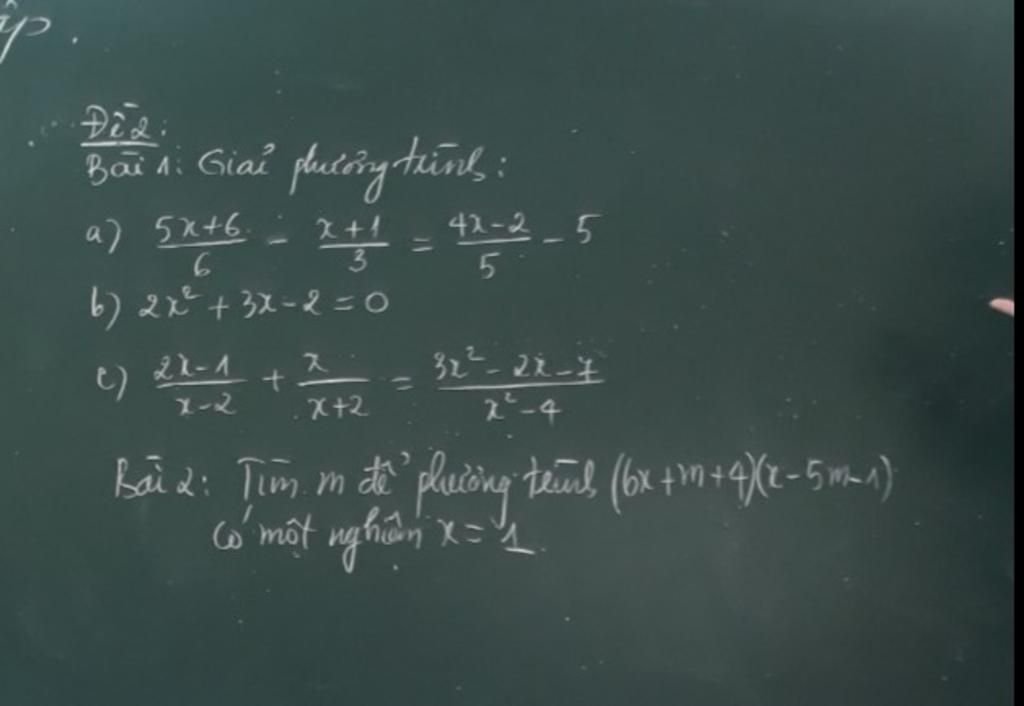 ập.
Đề 2:
Bài 1: Giải phương trình:
a) \frac{5x+6}{6} - \frac{x+1}{3} = \frac{4x-2}{5} - 5
b) 2x² + 3x - 2 = 0
c) \frac{2x-1}{x-2} + \frac{x}{x+2} = \frac{3x²-2x-7}{x²-4}
Bài 2: Tìm m để phương trình (6x+m+4)(x-5m-1)
có một nghiệm x = 1